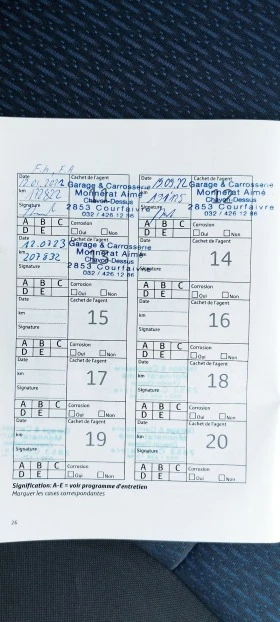 Date
Cachet de l'agent
Garage & Carrosserie
Monnerat Aimé
Chavon-Dessus
2853 Courfaivre
032 / 426 12 86
km
Signature
A B C
D E
Corrosion
Oui Non
Date
Cachet de l'agent
Garage & Carrosserie
Monnerat Aimé
Chavon-Dessus
2853 Courfaivre
032 / 426 12 86
km
Signature
A B C
D E
Corrosion
Oui Non
Date 12.07.23
Cachet de l'agent
Garage & Carrosserie
Monnerat Aimé
Chavon-Dessus
2853 Courfaivre
032 / 426 12 86
km 207832
Signature
A B C
D E
Corrosion
Oui Non
Date
Cachet de l'agent
km
14
Signature
A B C
D E
Corrosion
Oui Non
Date
Cachet de l'agent
km
15
Signature
A B C
D E
Corrosion
Oui Non
Date
Cachet de l'agent
km
16
Signature
A B C
D E
Corrosion
Oui Non
Date
Cachet de l'agent
km
17
Signature
A B C
D E
Corrosion
Oui Non
Date
Cachet de l'agent
km
18
Signature
A B C
D E
Corrosion
Oui Non
Date
Cachet de l'agent
km
19
Signature
A B C
D E
Corrosion
Oui Non
Date
Cachet de l'agent
km
20
Signature
A B C
D E
Corrosion
Oui Non
Signification: A-E = voir programme d'entretien
Marquer les cases correspondantes
26